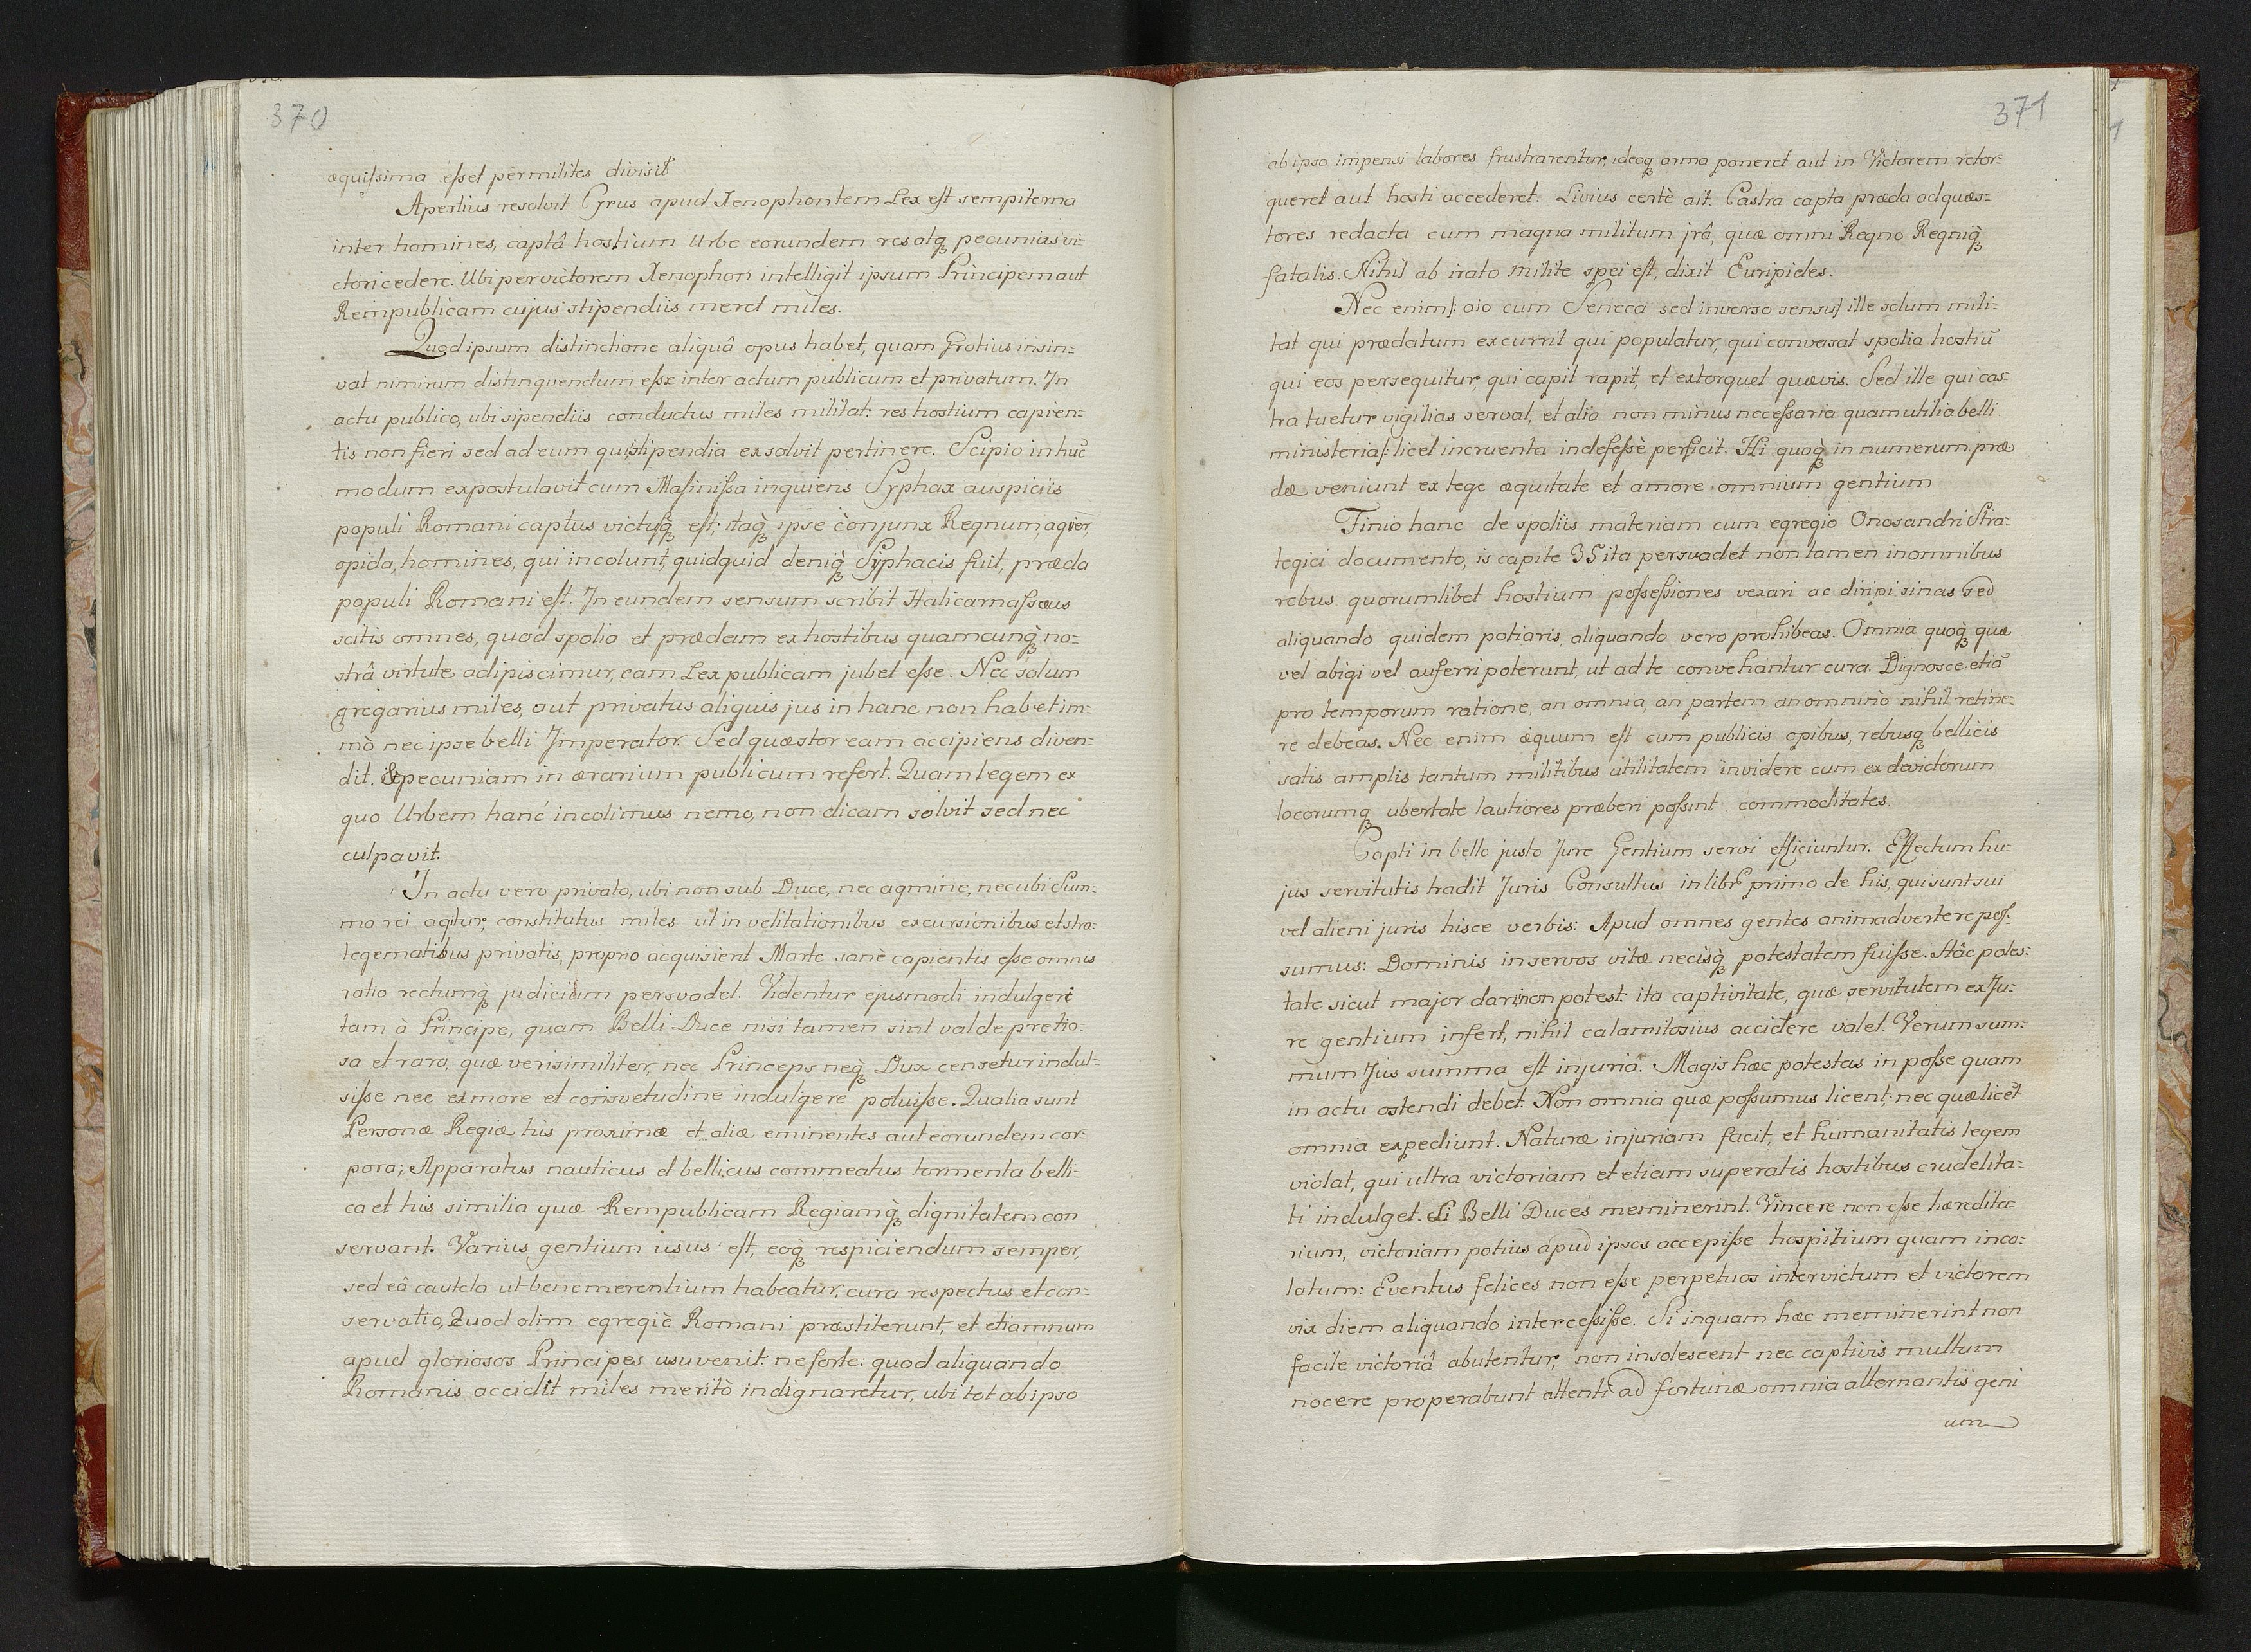 370
æquiſsima eſset per milites divisit
Apertius resolvit Cyrus apud Xenophontem Lex eſt sempiterna
inter homines, captâ hostium Urbe eorundem res atq̨ pecunias vi-
ctori cedere. Ubi per victorem Xenophon intelligit ipsum Principem aut
Rempublicam cujus stipendiis meret miles.
Quod ipsum distinctione aliquâ opus habet, quam Grotius insin-
vat nimirum distingvendum eſse inter actum publicum et privatum. In
actu publico, ubi sipendiis conductus miles militat: res hostium capien-
tis non fieri sed ad eum qui stipendia exsolvit pertinere. Scipio in huc̄
modum expostulavit cum Masiniſsa inquiens Syphax auspiciis
populi Romani captus victusq̨ eſt; itaq̨ ipse conjunx Regnum, ager,
opida, homines, qui incolunt, quidquid deniq̨ Syphacis fuit, præda
populi Romani eſt. In eundem sensum scribit Halicarnaſsæus
scitis omnes, quod spolia et prædam ex hostibus quamcunq̨ no-
strâ virtute adipiscimur, eam Lex publicam jubet eſse. Nec solum
gregarius miles, aut privatus aliquis jus in hanc non habet im-
mò nec ipse belli Imperator. Sed quæstor eam accipiens diven-
dit. & pecuniam in ærarium publicum refert. Quam legem ex
quo Urbem hanc incolimus nemo, non dicam solvit sed nec
culpavit.
In actu vero privato, ubi non sub Duce, nec agmine, nec ubi Sum-
ma rei agitur, constitutus miles ut in velitationibus excursionibus et stra-
tegematibus privatis, proprio acquisierit Marte sanè capientis eſse omnis
ratio rectumq̨ judicium persvadet. Videntur ejusmodi indulgeri
tam à Principe, quam Belli Duce nisi tamen sint valde pretio-
sa et rara, quæ verisimiliter, nec Princeps neq̨ Dux censetur indul-
siſse nec ex more et consvetudine indulgere potuiſse. Qualia sunt
Personæ Regiæ his proximæ et aliæ eminentes aut eorundem cor-
pora; Apparatus nauticus et bellicus commeatus tormenta belli-
ca et his similia quæ Rempublicam Regiamq̨ dignitatem con
servant. Varius gentium usus eſt, eoq̨ respiciendum semper,
sed eâ cautela ut benemerentium habeatur, cura respectus et con-
servatio, Quod olim egregiè Romani præstiterunt, et etiamnum
apud gloriosos Principes usuvenit: ne forte: quod aliquando
Romanis accidit miles meritò indignaretur, ubi tot ab ipso
371
ab ipso impensi labores frustrarentur, ideoq̨ arma poneret aut in Victorem retor-
queret aut hosti accederet. Livius certè ait. Castra capta præda ad quæs-
tores redacta cum magna militum jrâ, quæ omni Regno Regniq̨
fatalis. Nihil ab irato milite spei eſt, dixit Euripides.
Nec enim /: aio cum Seneca sed inverso sensu :/ ille solum mili-
tat qui prædatum excurrit qui populatur, qui convasat spolia hostiū
qui eos persequitur, qui capit rapit, et extorquet quævis. Sed ille qui cas-
tra tuetur vigilias servat, et alia non minus neceſsaria quam utilia belli
ministeria /: licet incruenta indefeſsè perficit. Hi quoq̨ in numerum præ
dæ veniunt ex lege æquitate et amore omnium gentium
Finio hanc de spoliis materiam cum egregio Onosandri Stra-
tegici documento, is capite 35 ita persvadet non tamen in omnibus
rebus quorumlibet hostium poſseſsiones vexari ac diripi sinas sed
aliquando quidem potiaris, aliquando vero prohibeas. Omnia quoq̨ quæ
vel abigi vel auferri poterunt, ut ad te convehantur cura. Dignosce etiā
pro temporum ratione, an omnia, an partem an omninò nihil retine-
re debeas. Nec enim æquum eſt cum publicis opibus, rebusq̨ bellicis
satis amplis tantum militibus utilitatem invidere cum ex devictorum
locorumq̨ ubertate lautiores præberi poſsint commoditates.
Capti in bello justo Jure Gentium servi efficiuntur. Effectum hu-
jus servitutis tradit Juris Consultus in librō primo de his, qui sunt sui
vel alieni juris hisce verbis: Apud omnes gentes animadvertere poſ-
sumus: Dominis in servos vitæ necisq̨ potestatem fuiſse. Hâc potes-
tate sicut major dari non potest: ita captivitate, quæ servitutem ex Ju-
re gentium infert, nihil calamitosius accidere valet. Verum sum-
mum Jus summa eſt injuria. Magis hæc potestas in poſse quam
in actu ostendi debet. Non omnia quæ poſsumus licent; nec quæ licet
omnia expediunt. Naturæ injuriam facit, et humanitatis legem
violat, qui ultra victoriam et etiam superatis hostibus crudelita-
ti indulget. Si Belli Duces meminerint. Vincere non eſse hæredita
rium, victoriam potius apud ipsos accepiſse hospitium quam inco-
latum: Eventus felices non eſse perpetuos inter victum et victorem
vix diem aliquando interceſsiſse. Si inquam hæc meminerint non
facile victoriâ abutentur, non insolescent nec captivis multum
nocere properabunt attenti ad fortunæ omnia alternantis geni
um